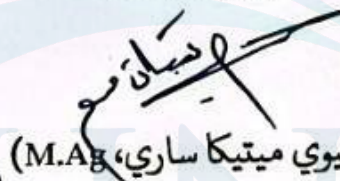 يوي ميتيكا ساري، M.Ag)